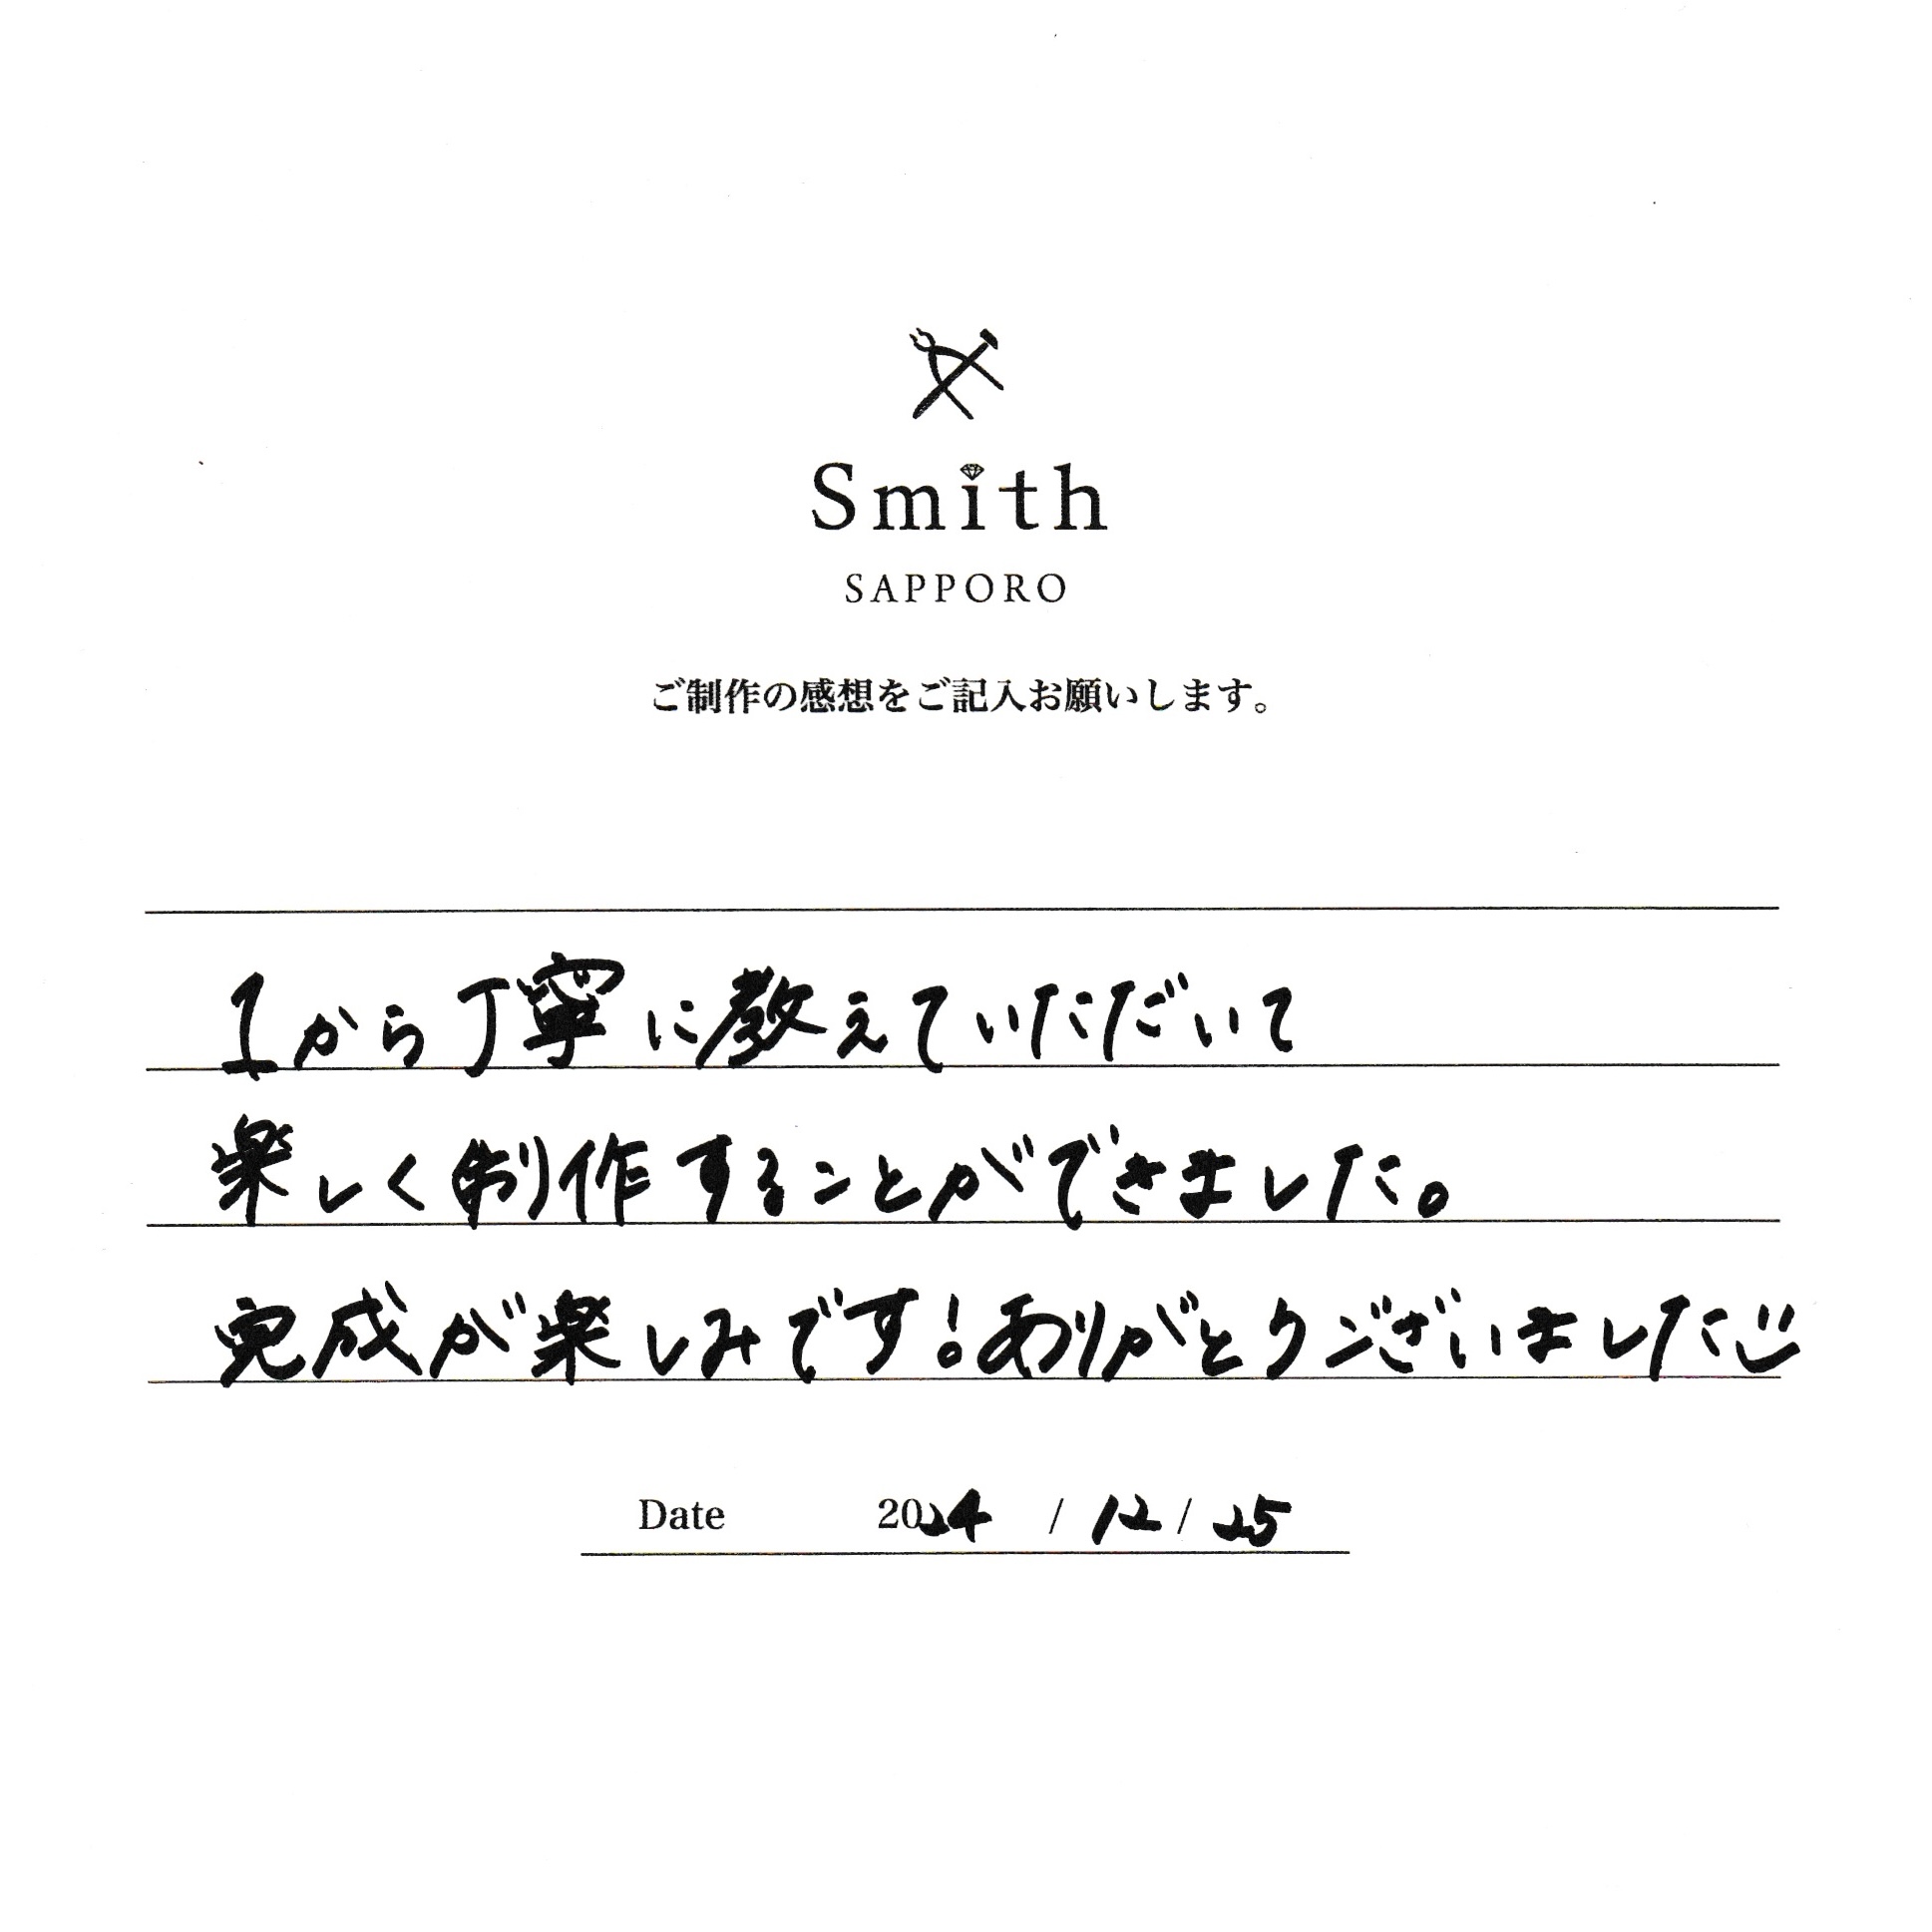 Smith
SAPPORO
ご制作の感想をご記入お願いします。
1から丁寧に教えていただいて
楽しく制作することができました。
完成が楽しみです!ありがとうございました
Date 2024 / 12 / 25